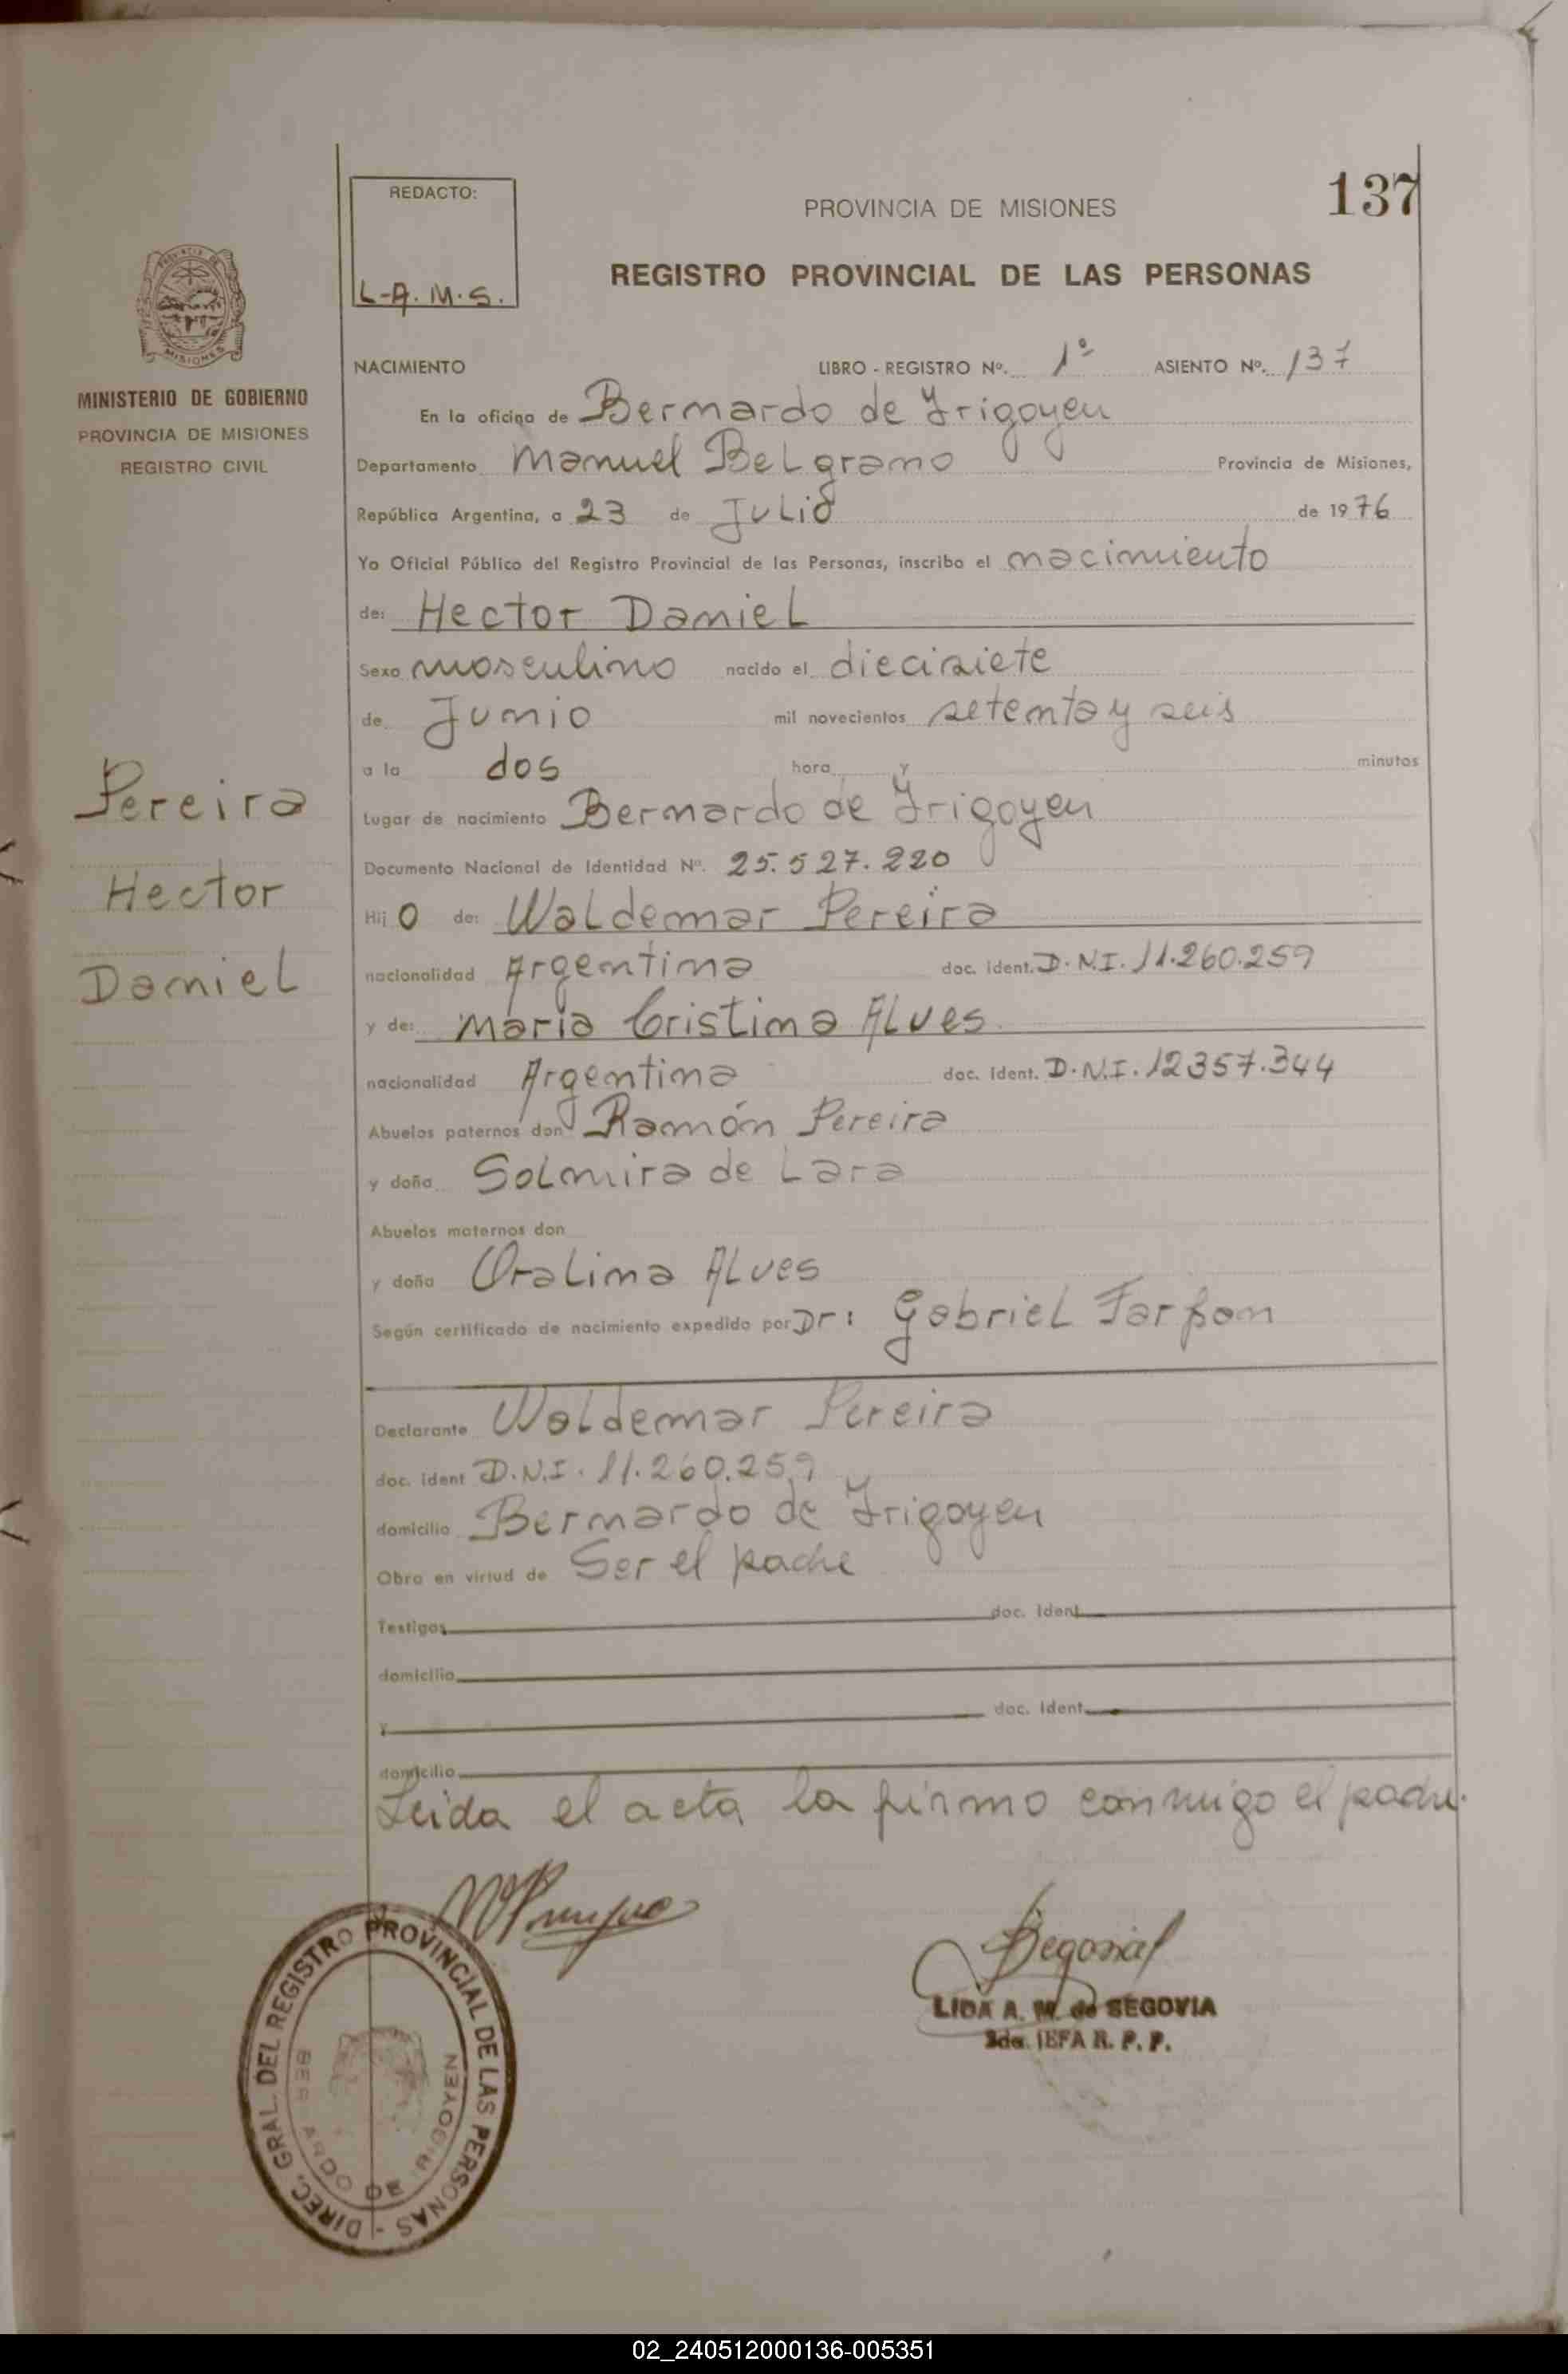 REDACTO:
L-A. M. S.
PROVINCIA DE MISIONES
137
REGISTRO PROVINCIAL DE LAS PERSONAS
MINISTERIO DE GOBIERNO
PROVINCIA DE MISIONES
REGISTRO CIVIL
NACIMIENTO LIBRO - REGISTRO Nº. 1º ASIENTO Nº. 137
En la oficina de Bernardo de Irigoyen
Departamento Manuel Belgrano Provincia de Misiones,
República Argentina, a 23 de Julio de 1976
Yo Oficial Público del Registro Provincial de las Personas, inscribo el nacimiento
de: Hector Daniel
Sexo masculino nacido el diecisiete
de Junio mil novecientos setenta y seis
a la dos hora y minutos
Pereira
Hector
Daniel
Lugar de nacimiento Bernardo de Irigoyen
Documento Nacional de Identidad Nº. 25.527.220
Hij o de: Waldemar Pereira
nacionalidad Argentina doc. ident. D.N.I. 11.260.259
y de: Maria Cristina Alves
nacionalidad Argentina doc. ident. D.N.I. 12357.344
Abuelos paternos don Ramón Pereira
y doña Solmira de Lara
Abuelos maternos don
y doña Oralina Alves
Según certificado de nacimiento expedido por Dr: Gabriel Farfan
Declarante Waldemar Pereira
doc. ident D.N.I. 11.260.259
domicilio Bernardo de Irigoyen
Obra en virtud de Ser el padre
Testigos doc. ident
domicilio
y doc. ident
domicilio
Leida el acta la firmo conmigo el padre.
Segovia
LIDA A. M. de SEGOVIA
2da. JEFA R. P. P.
DIREC. GRAL. DEL REGISTRO PROVINCIAL DE LAS PERSONAS -
BER ARDO DE IRIGOYEN
02_240512000136-005351